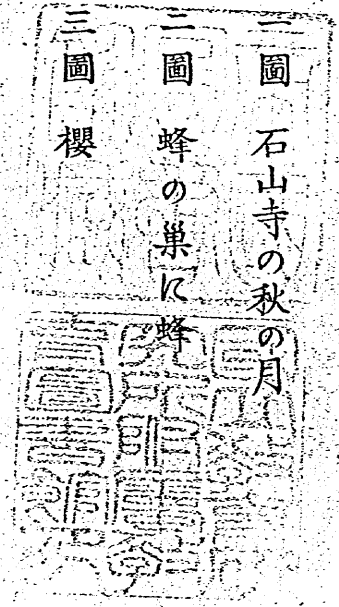 一圖 石山寺の秋の月
二圖 蜂の巣に蜂
三圖 櫻